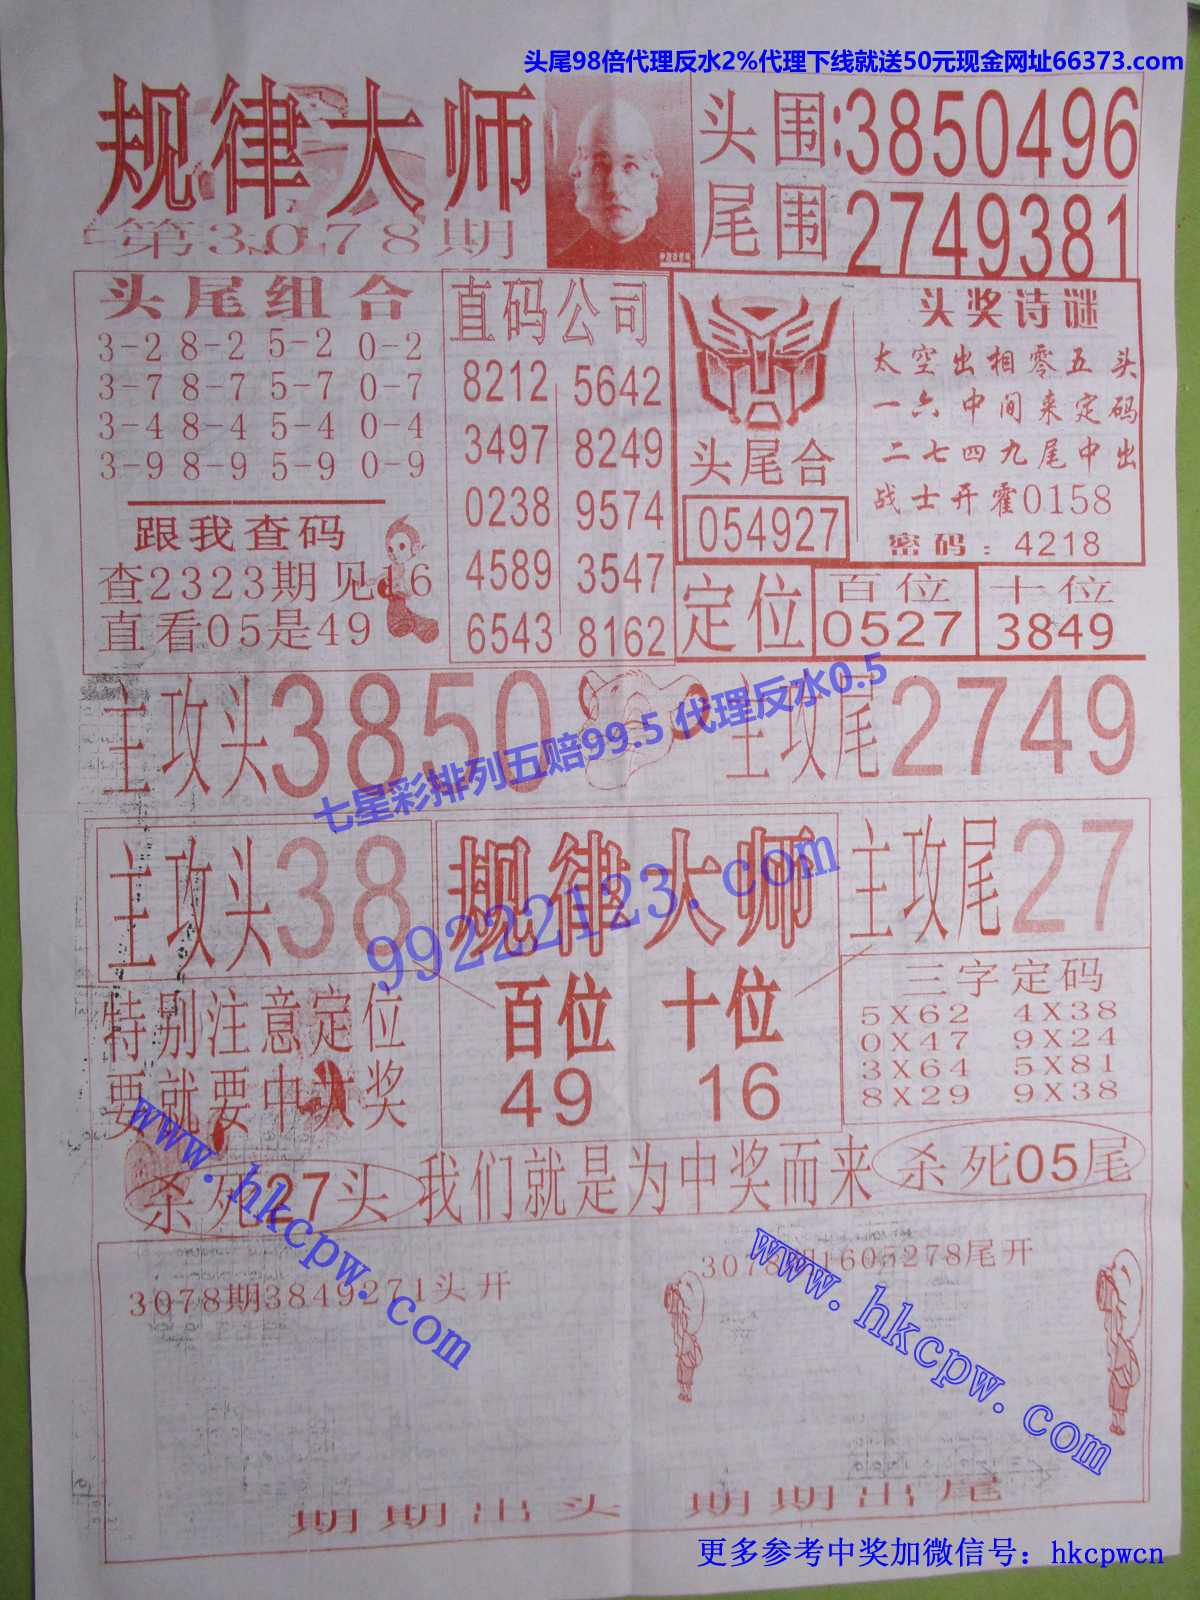 头尾98倍代理反水2%代理下线就送50元现金网址66373.com
规律大师
第3078期
头围:3850496
尾围2749381
头尾组合
3-2 8-2 5-2 0-2
3-7 8-7 5-7 0-7
3-4 8-4 5-4 0-4
3-9 8-9 5-9 0-9
跟我查码
查2323期见16
直看05是49
直码公司
8212 5642
3497 8249
0238 9574
4589 3547
6543 8162
头尾合
054927
头奖诗谜
太空出相零五头
一六中间来定码
二七四九尾中出
战士开霍0158
密码:4218
定位
百位
0527
十位
3849
主攻头3850
主攻尾2749
七星彩排列五赔99.5 代理反水0.5
主攻头38
规律大师
主攻尾27
99222123.com
特别注意定位
要就要中大奖
百位 十位
49 16
三字定码
5X62 4X38
0X47 9X24
3X64 5X81
8X29 9X38
杀死27头
我们就是为中奖而来
杀死05尾
www.hkcpw.com
www.hkcpw.com
3078期3849271头开
3078期1605278尾开
期期出头 期期出尾
更多参考中奖加微信号：hkcpwcn